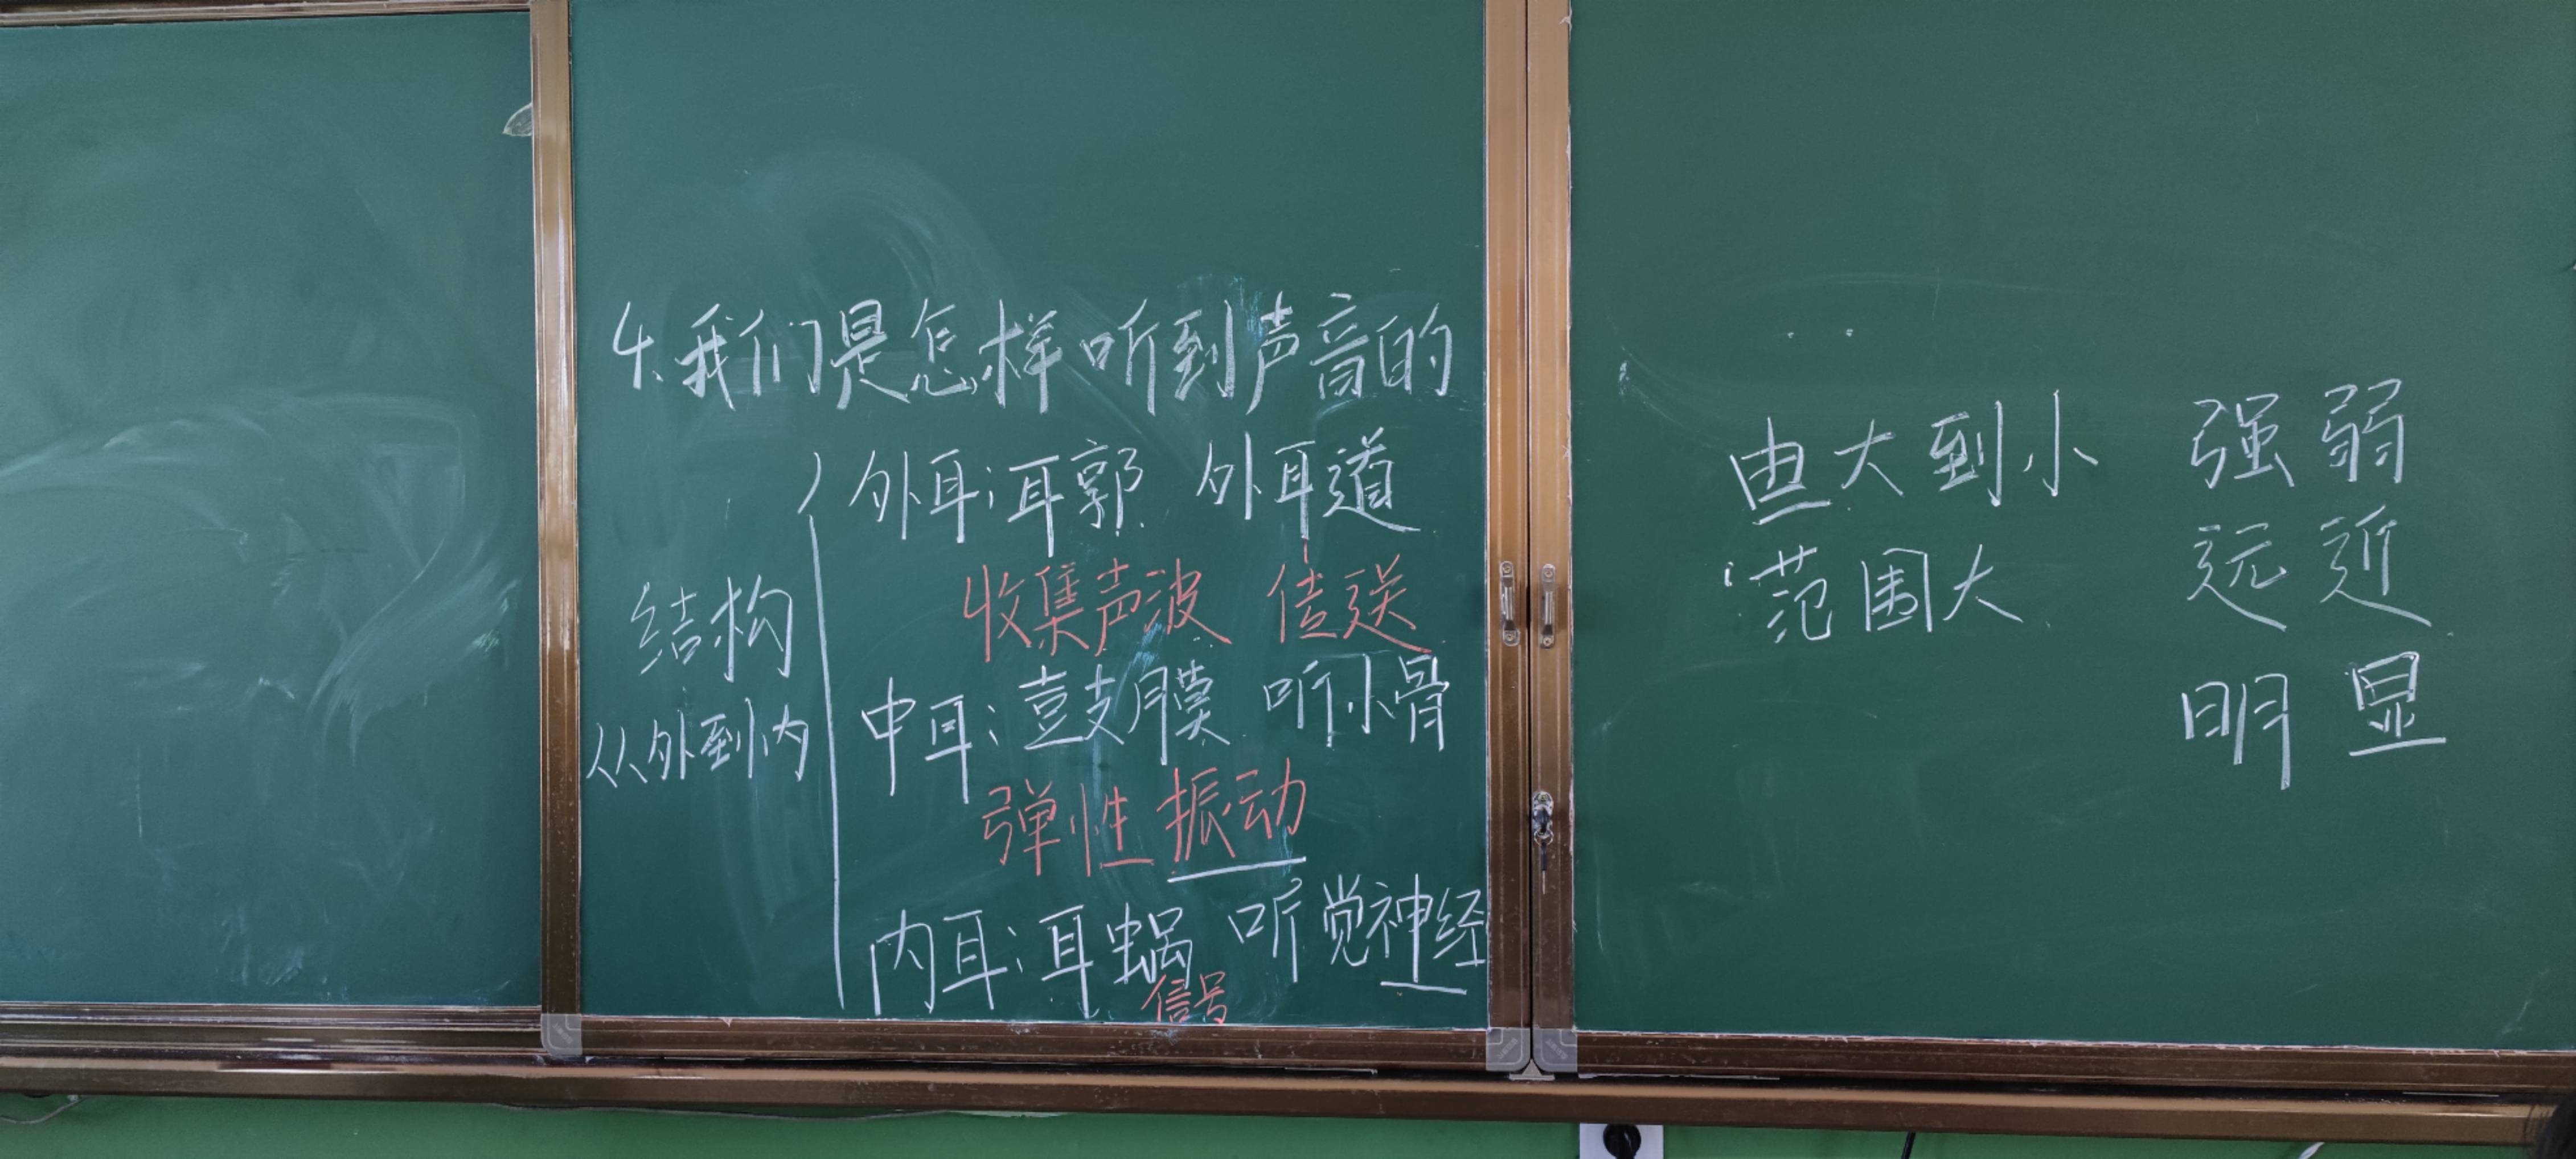 4.我们是怎样听到声音的
外耳:耳郭 外耳道
收集声波 传送
结构
从外到内
中耳:鼓膜 听小骨
弹性振动
内耳:耳蜗 听觉神经
信号
由大到小 强弱
范围大 远近
明显